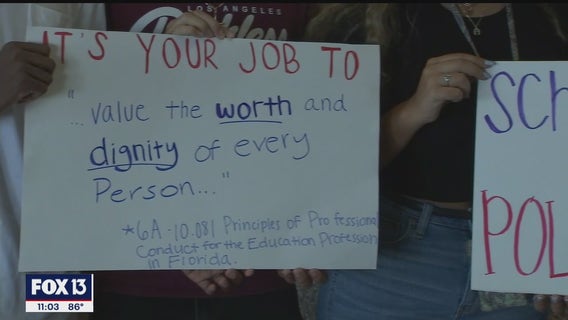 LOS ANGELES
IT'S YOUR JOB TO
"...value the worth and
dignity of every
Person..."
*6A-10.081 Principles of Professional
Conduct for the Education Profession
in Florida.
SCH
POL
FOX 13
11:03 86°